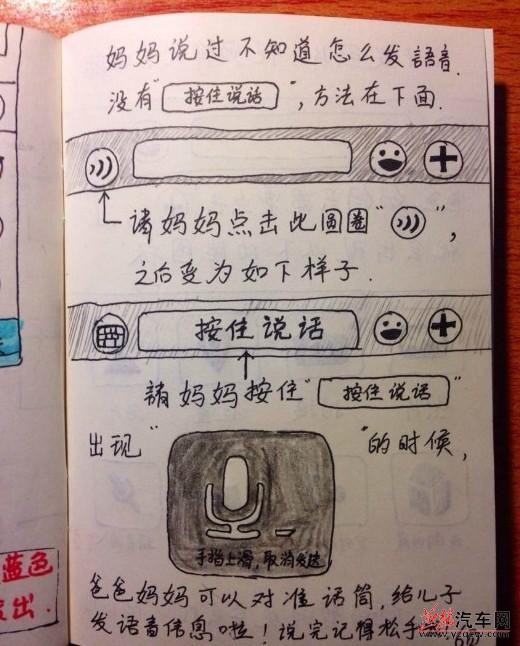 妈妈说过不知道怎么发語音.
没有"按住说话",方法在下面.
请妈妈点击此圆圈" ",
之后变为如下样子.
按住说话
請妈妈按住"按住说话"
出现" "的时候,
手指上滑,取消发送
爸爸妈妈可以对准话筒,给儿子
发语音信息啦!说完记得松手
蓝色
出.
汽车网
www.yzqcw.com